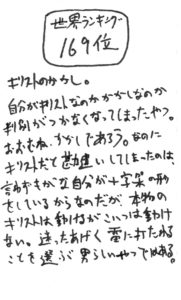 世界ランキング
169位
キリストのかかし。
自分がキリストなのかかかしなのか
判別がつかなくなってしまったやつ。
おおむね、かかしであろう。なのに
キリストだと勘違いしてしまったのは、
言わずもがな自分が十字架の形
をしているからなのだが、本物の
キリストは動けるがこいつは動け
ない。迷ったあげく雷に打たれる
ことを選ぶ男らしいやつではある。